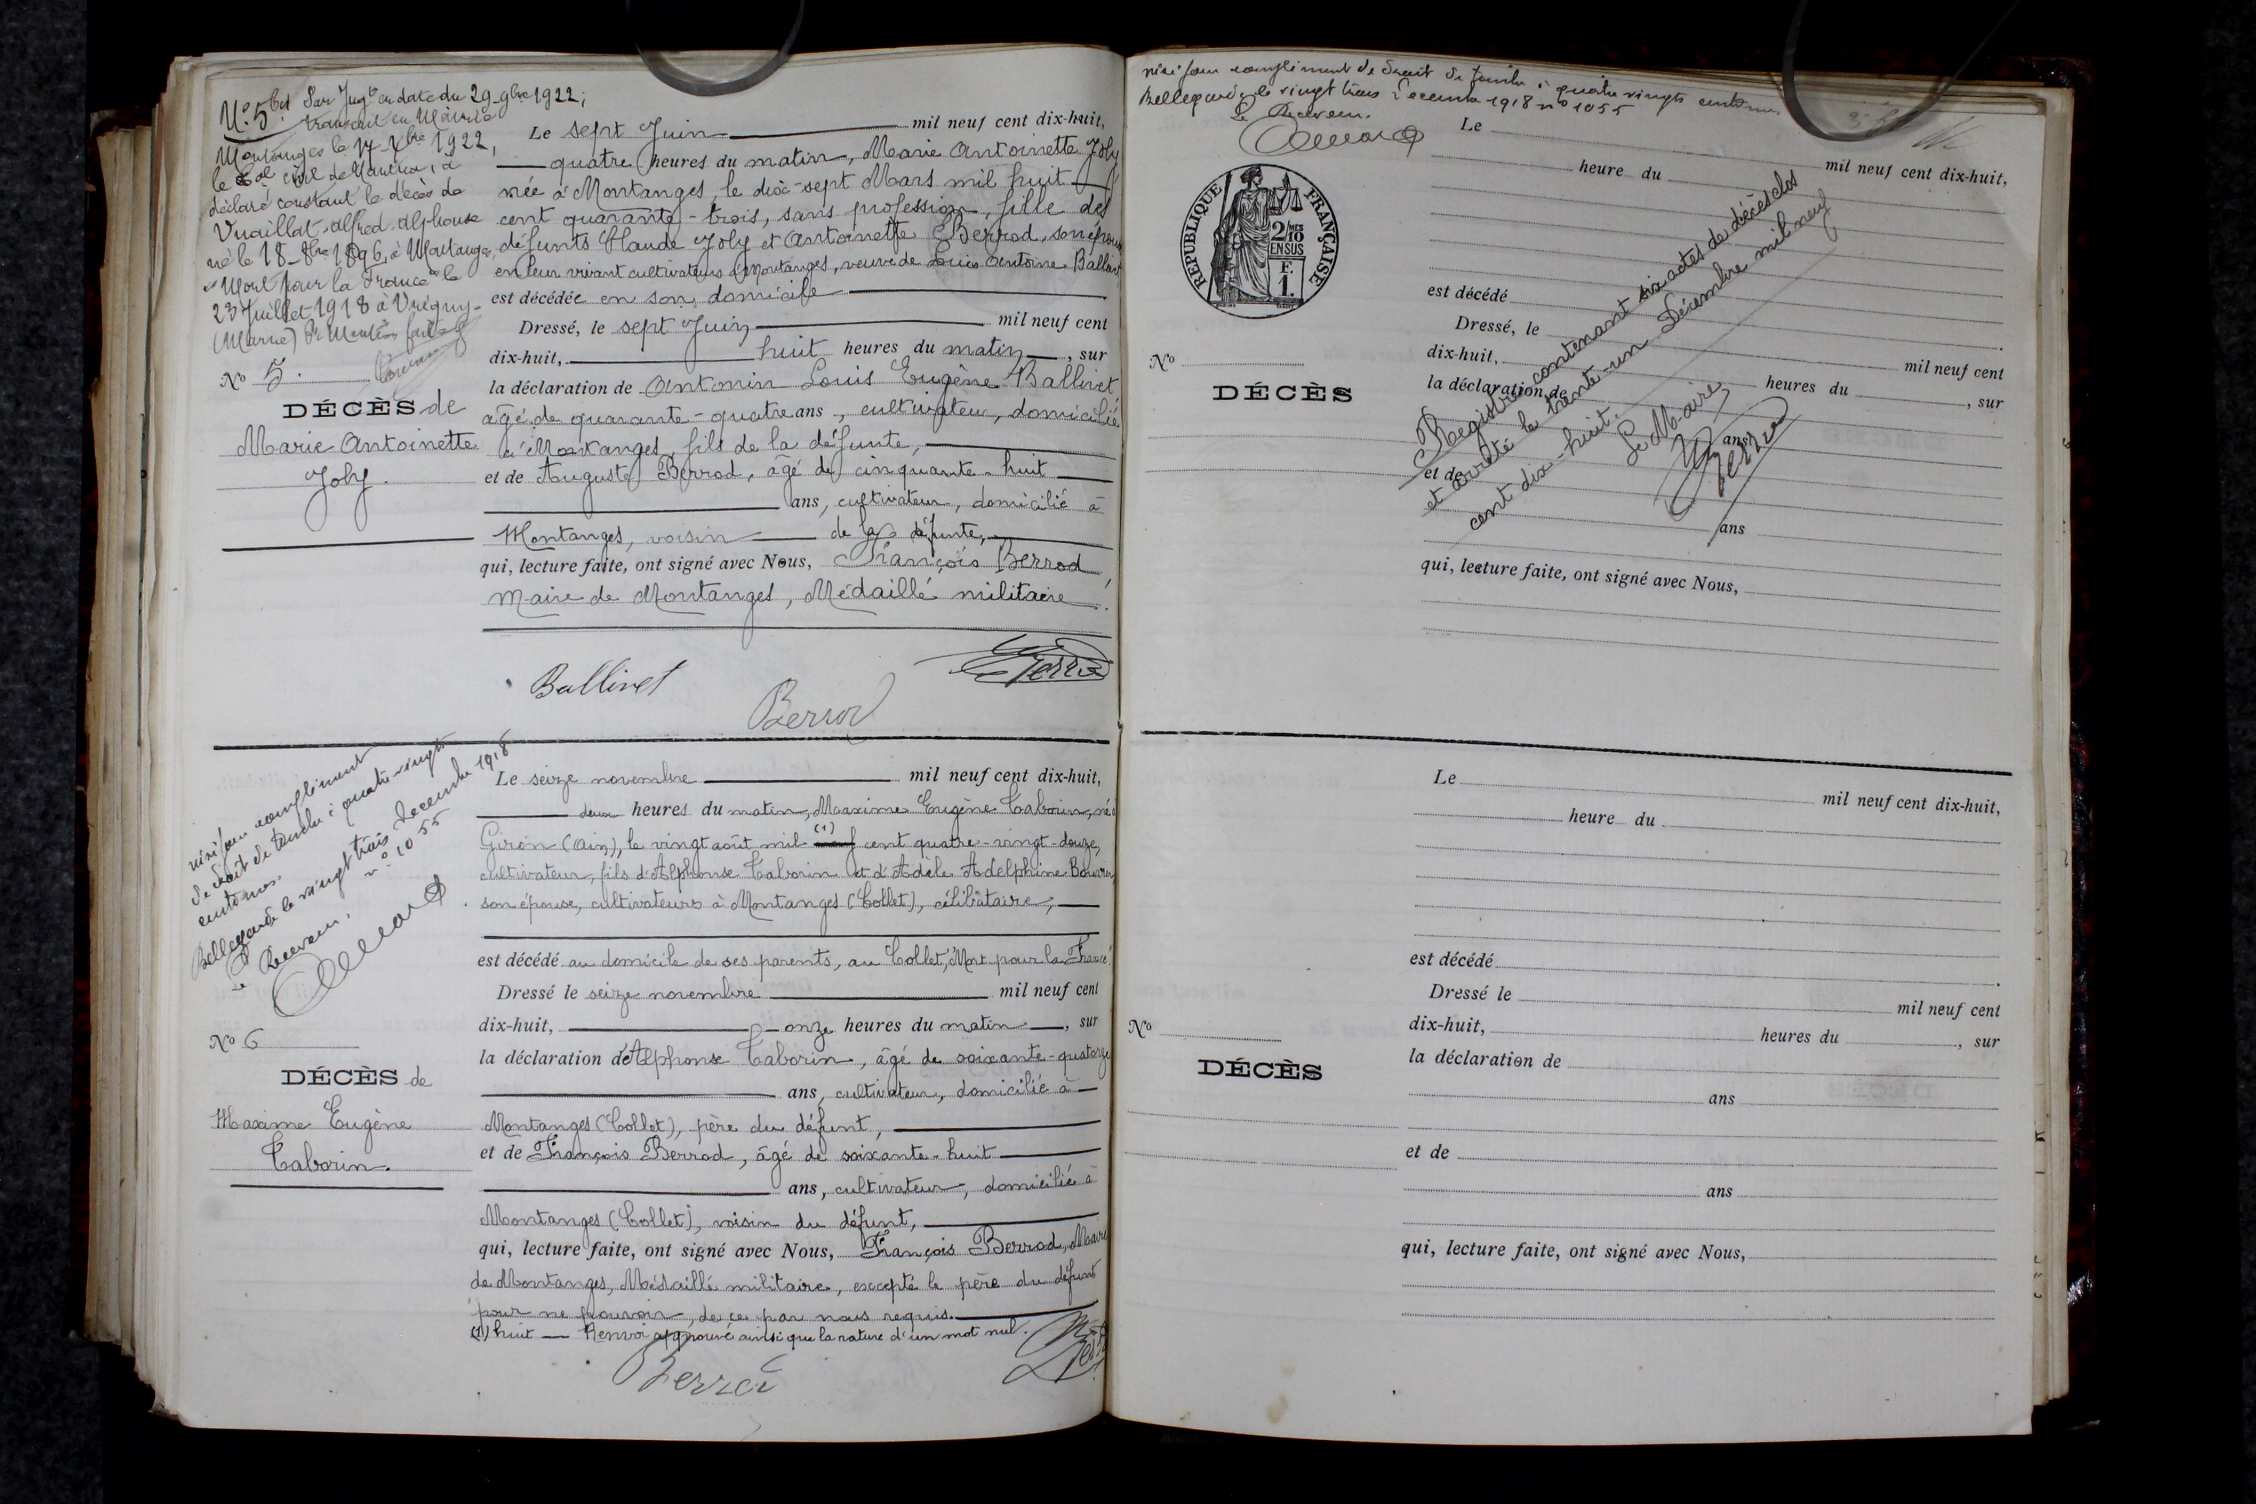 No. 5 bis Par Jugt en date du 29-9bre 1922;
transcrit en Mairie
Montanges le 14-Xbre 1922,
le civil de Nantua, a
déclaré constant le décès de
Vuaillat Alfred Alphonse
né le 18-8bre 1896, à Montanges,
"Mort pour la France" le
23 Juillet 1918 à Vrigny-
(Marne)
No 5.
DÉCÈS de
Marie Antoinette
Joly.
Le sept Juin mil neuf cent dix-huit,
quatre heures du matin, Marie Antoinette Joly
née à Montanges, le dix-sept Mars mil huit
cent quarante-trois, sans profession, fille des
défunts Claude Joly et Antoinette Berrod, son épouse
en leur vivant cultivateurs à Montanges, veuve de Louis Antoine Ballivet
est décédée en son domicile
Dressé, le sept Juin mil neuf cent
dix-huit, huit heures du matin, sur
la déclaration de Antonin Louis Eugène Ballivet
âgé de quarante-quatre ans, cultivateur, domicilié
à Montanges, fils de la défunte,
et de Auguste Berrod, âgé de cinquante-huit
ans, cultivateur, domicilié à
Montanges, voisin de la défunte,
qui, lecture faite, ont signé avec Nous, François Berrod,
Maire de Montanges, Médaillé militaire.
Ballivet
Berrod
Berrod
visé pour complément
de droit de timbre à quatre vingts
centimes.
Bellegarde le vingt trois Decembre 1918
n° 1055
Le Receveur.
No 6
DÉCÈS de
Maxime Eugène
Taborin.
Le seize novembre mil neuf cent dix-huit,
deux heures du matin, Maxime Eugène Taborin, né à
Giron (Ain), le vingt août mil (1) neuf cent quatre-vingt-douze,
cultivateur, fils d'Alphonse Taborin et d'Adèle Adelphine
son épouse, cultivateurs à Montanges (Collet), célibataire,
est décédé au domicile de ses parents, au Collet, "Mort pour la France".
Dressé le seize novembre mil neuf cent
dix-huit, onze heures du matin, sur
la déclaration d'Alphonse Taborin, âgé de soixante-quatorze
ans, cultivateur, domicilié à
Montanges (Collet), père du défunt,
et de François Berrod, âgé de soixante-huit
ans, cultivateur, domicilié à
Montanges (Collet), voisin du défunt,
qui, lecture faite, ont signé avec Nous, François Berrod, Maire
de Montanges, Médaillé militaire, excepté le père du défunt
pour ne pouvoir, de ce par nous requis.
(1) huit — Renvoi approuvé ainsi que la rature d'un mot nul.
Berrod
visé pour complément de droit de timbre à quatre vingts centimes
Bellegarde, le vingt trois Decembre 1918 n° 1055
Le Receveur.
RÉPUBLIQUE FRANÇAISE
2/10
EN SUS
F.
1.
No
DÉCÈS
Le mil neuf cent dix-huit,
heure du
est décédé
Dressé, le mil neuf cent
dix-huit, heures du , sur
la déclaration de
ans
et de
ans
qui, lecture faite, ont signé avec Nous,
Registre contenant six actes de décès clos
et arrêté le trente-un Décembre mil neuf
cent dix-huit.
Le Maire,
Berrod
No
DÉCÈS
Le mil neuf cent dix-huit,
heure du
est décédé
Dressé le mil neuf cent
dix-huit, heures du , sur
la déclaration de
ans
et de
ans
qui, lecture faite, ont signé avec Nous,